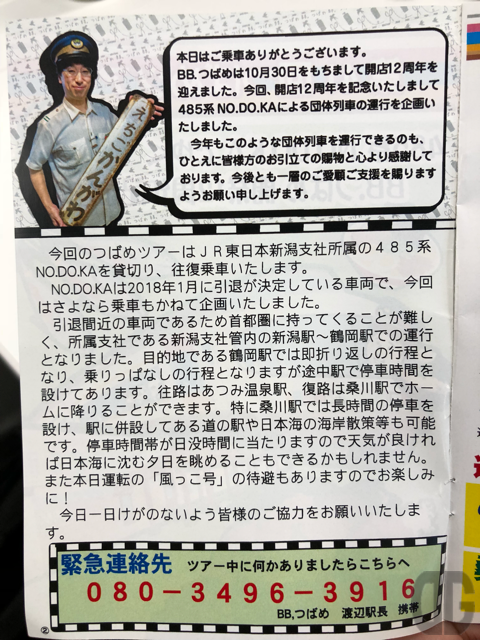 本日はご乗車ありがとうございます。
BB.つばめは10月30日をもちまして開店12周年を
迎えました。今回、開店12周年を記念いたしまして
485系NO.DO.KAによる団体列車の運行を企画い
たしました。
今年もこのような団体列車を運行できるのも、
ひとえに皆様方のお引立ての賜物と心より感謝して
おります。今後とも一層のご愛顧ご支援を賜ります
ようお願い申し上げます。
えちごかんばら
今回のつばめツアーはJR東日本新潟支社所属の485系
NO.DO.KAを貸切り、往復乗車いたします。
NO.DO.KAは2018年1月に引退が決定している車両で、今回
はさよなら乗車もかねて企画いたしました。
引退間近の車両であるため首都圏に持ってくることが難し
く、所属支社である新潟支社管内の新潟駅～鶴岡駅での運行
となりました。目的地である鶴岡駅では即折り返しの行程と
なり、乗りっぱなしの行程となりますが途中駅で停車時間を
設けてあります。往路はあつみ温泉駅、復路は桑川駅でホー
ムに降りることができます。特に桑川駅では長時間の停車を
設け、駅に併設してある道の駅や日本海の海岸散策等も可能
です。停車時間帯が日没時間に当たりますので天気が良けれ
ば日本海に沈む夕日を眺めることもできるかもしれません。
また本日運転の「風っこ号」の待避もありますのでお楽しみ
に！
今日一日けがのないよう皆様のご協力をお願いいたしま
す。
緊急連絡先 ツアー中に何かありましたらこちらへ
080－3496－3916
BB.つばめ 渡辺駅長 携帯
②